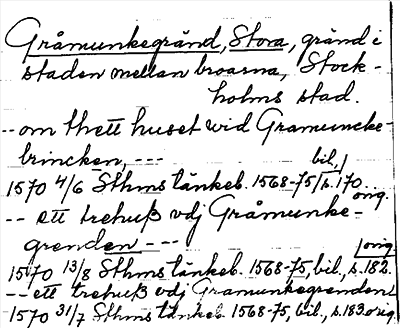 Gråmunkegränd, Stora, gränd i
staden mellan broarna, Stock-
holms stad.
-- om thett huset wid Gramuncke-
brincken, ---
1570 4/6 Sthms tänkeb. 1568-75, bil., s. 170 orig.
-- ett trehuß vdj Gråmunke-
grenden ---
1570 13/8 Sthms tänkeb. 1568-75, bil., s. 182. orig.
-- ett trehuß vdj Gramunkegrenden
1570 31/7 Sthms tänkeb. 1568-75, bil., s. 183 orig.